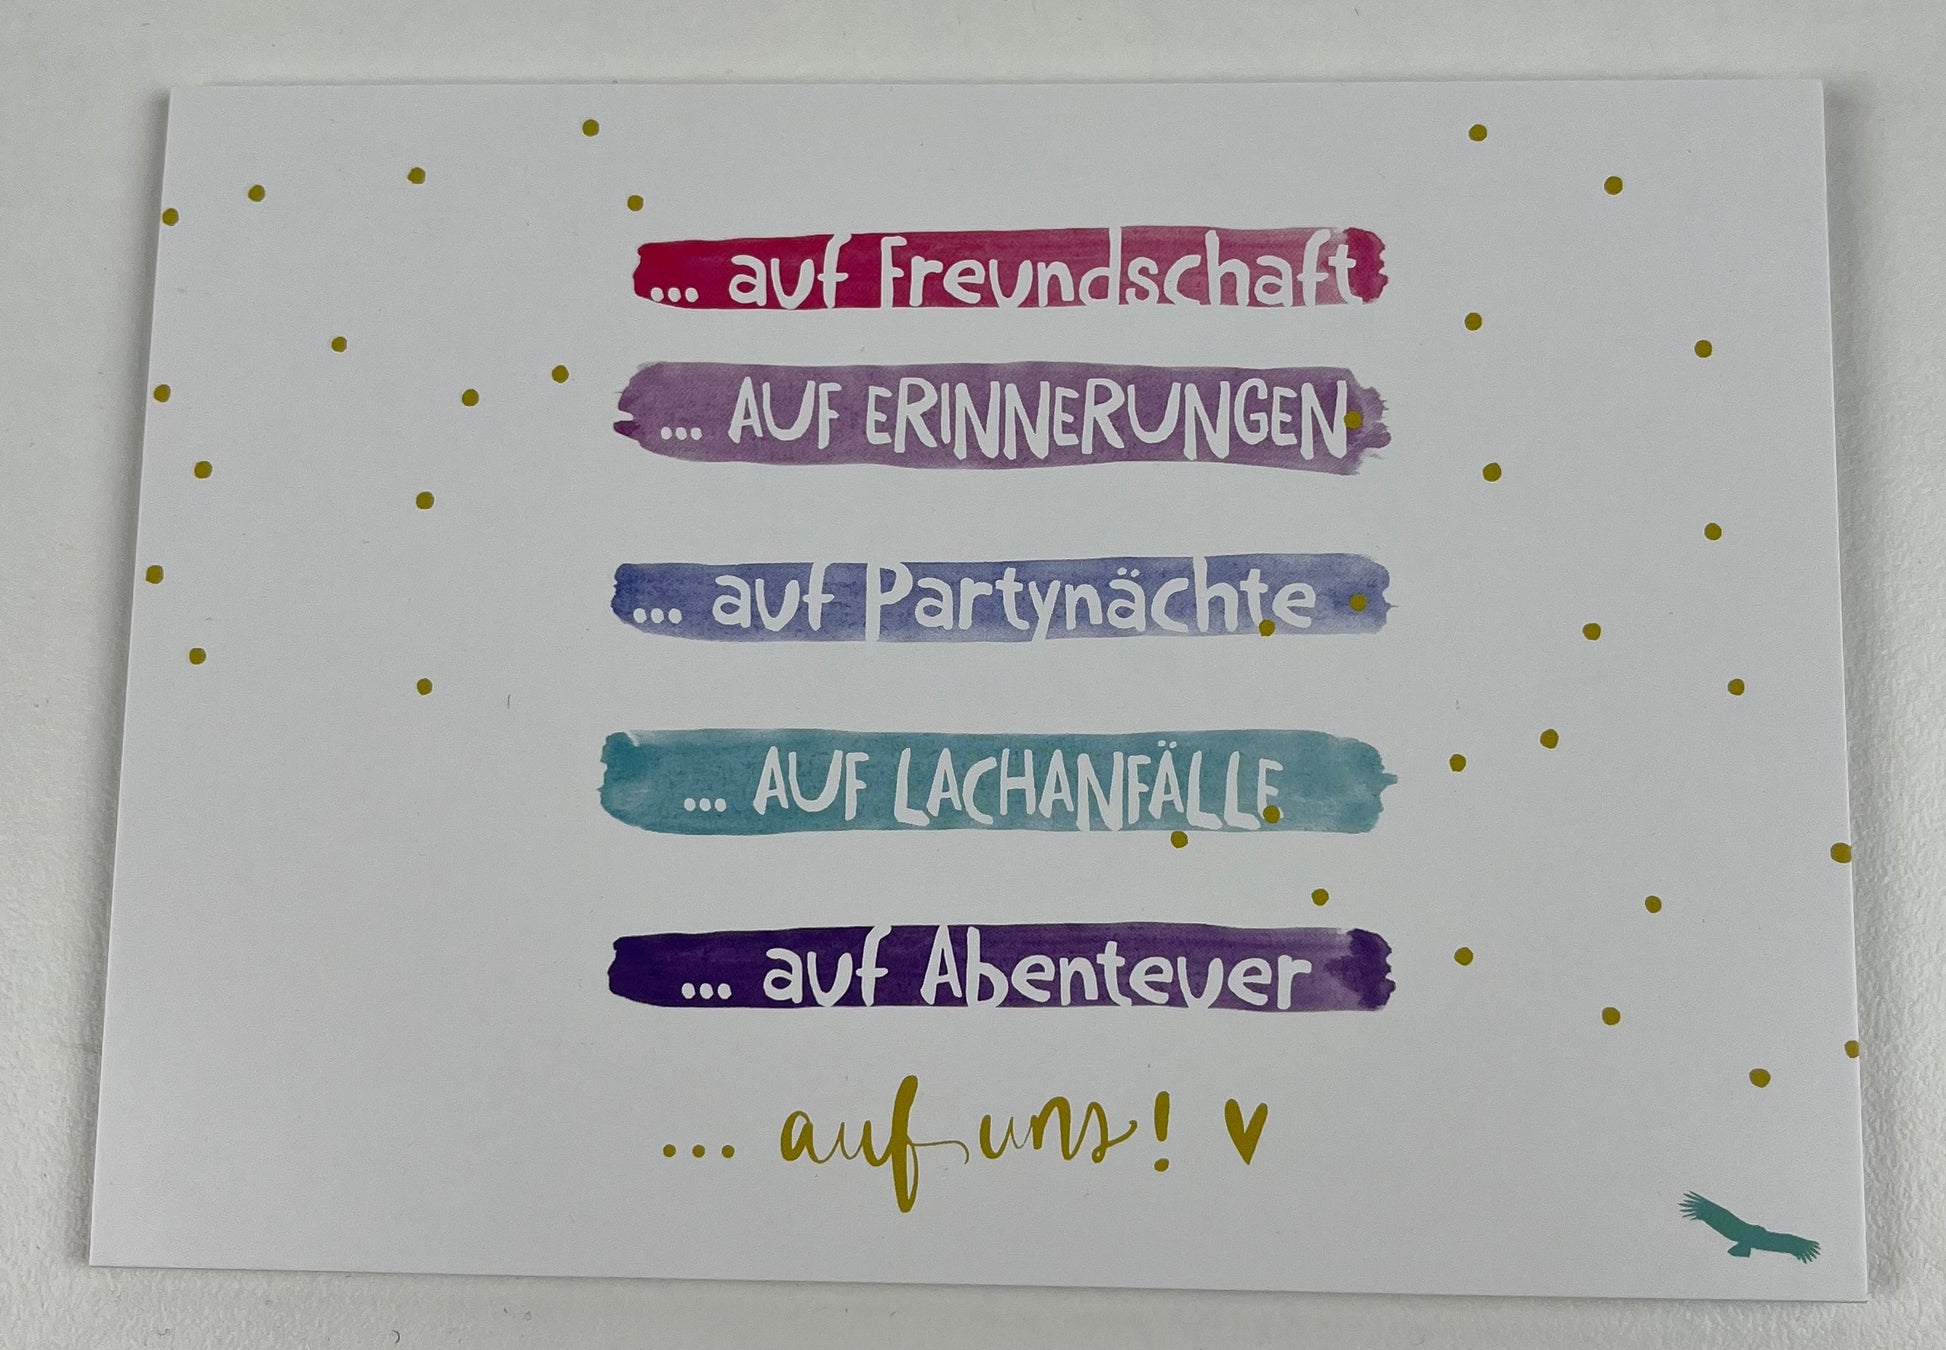 ... auf Freundschaft
... AUF ERINNERUNGEN
... auf Partynächte
... AUF LACHANFÄLLE
... auf Abenteuer
... auf uns!